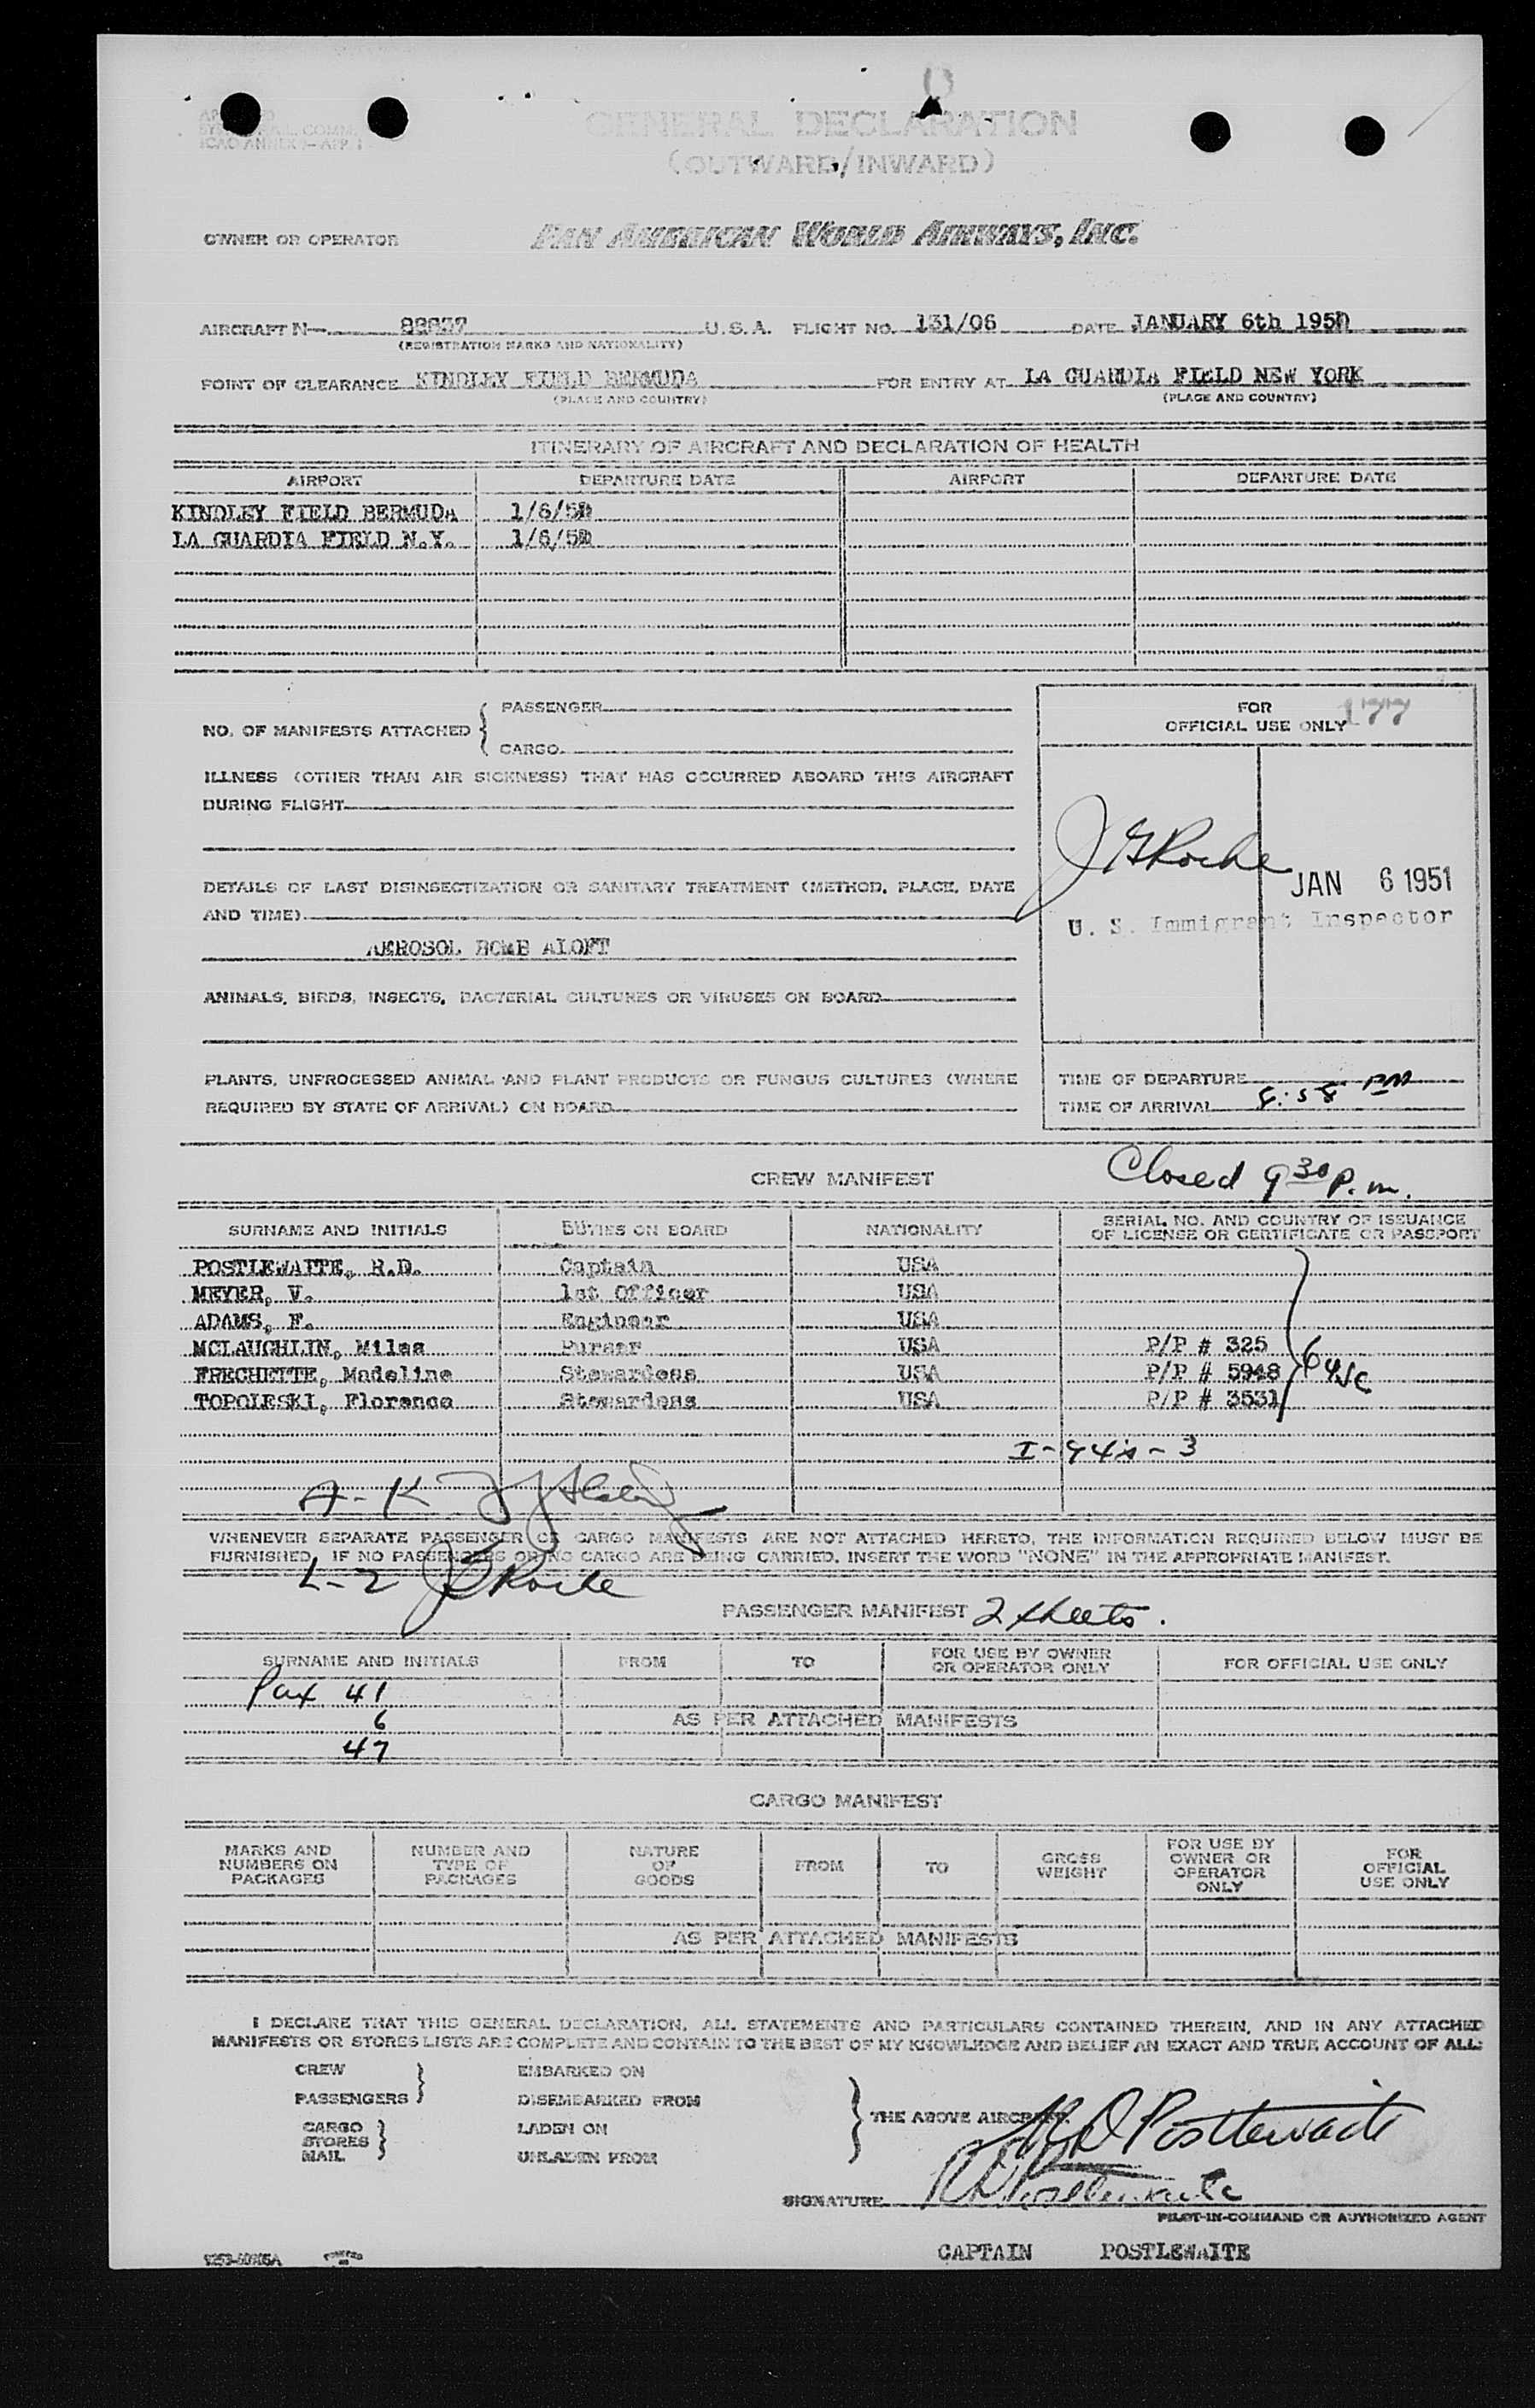 GENERAL DECLARATION
(OUTWARD/INWARD)
OWNER OR OPERATOR PAN AMERICAN WORLD AIRWAYS, INC.
AIRCRAFT N- U.S.A. FLIGHT NO. 131/06 DATE JANUARY 6th 195
(REGISTRATION MARKS AND NATIONALITY)
POINT OF CLEARANCE KINDLEY FIELD BERMUDA FOR ENTRY AT LA GUARDIA FIELD NEW YORK
(PLACE AND COUNTRY) (PLACE AND COUNTRY)
ITINERARY OF AIRCRAFT AND DECLARATION OF HEALTH
AIRPORT DEPARTURE DATE AIRPORT DEPARTURE DATE
KINDLEY FIELD BERMUDA 1/6/5
LA GUARDIA FIELD N.Y. 1/6/5
NO. OF MANIFESTS ATTACHED { PASSENGER
CARGO
FOR
OFFICIAL USE ONLY 177
ILLNESS (OTHER THAN AIR SICKNESS) THAT HAS OCCURRED ABOARD THIS AIRCRAFT
DURING FLIGHT
J G Roche
JAN 6 1951
U. S. Immigrant Inspector
DETAILS OF LAST DISINSECTIZATION OR SANITARY TREATMENT (METHOD, PLACE, DATE
AND TIME)
AEROSOL BOMB ALOFT
ANIMALS, BIRDS, INSECTS, BACTERIAL CULTURES OR VIRUSES ON BOARD
PLANTS, UNPROCESSED ANIMAL AND PLANT PRODUCTS OR FUNGUS CULTURES (WHERE
REQUIRED BY STATE OF ARRIVAL) ON BOARD
TIME OF DEPARTURE
TIME OF ARRIVAL 8:58 PM
CREW MANIFEST Closed 9 30 P.m.
SURNAME AND INITIALS DUTIES ON BOARD NATIONALITY SERIAL NO. AND COUNTRY OF ISSUANCE
OF LICENSE OR CERTIFICATE OR PASSPORT
POSTLEWAITE, R.D. Captain USA
MEYER, V. 1st Officer USA
ADAMS, F. Engineer USA
MCLAUGHLIN, Miles Purser USA P/P # 325
FRECHETTE, Madeline Stewardess USA P/P # 5948
TOPOLESKI, Florence Stewardess USA P/P # 3531
I-94's-3
A-K
WHENEVER SEPARATE PASSENGER OR CARGO MANIFESTS ARE NOT ATTACHED HERETO, THE INFORMATION REQUIRED BELOW MUST BE
FURNISHED. IF NO PASSENGERS OR NO CARGO ARE BEING CARRIED, INSERT THE WORD "NONE" IN THE APPROPRIATE MANIFEST.
L-Z J G Roche
PASSENGER MANIFEST 2 sheets.
SURNAME AND INITIALS FROM TO FOR USE BY OWNER
OR OPERATOR ONLY FOR OFFICIAL USE ONLY
Pax 41
6 AS PER ATTACHED MANIFESTS
47
CARGO MANIFEST
MARKS AND
NUMBERS ON
PACKAGES
NUMBER AND
TYPE OF
PACKAGES
NATURE
OF
GOODS
FROM
TO
GROSS
WEIGHT
FOR USE BY
OWNER OR
OPERATOR
ONLY
FOR
OFFICIAL
USE ONLY
AS PER ATTACHED MANIFESTS
I DECLARE THAT THIS GENERAL DECLARATION, ALL STATEMENTS AND PARTICULARS CONTAINED THEREIN, AND IN ANY ATTACHED
MANIFESTS OR STORES LISTS ARE COMPLETE AND CONTAIN TO THE BEST OF MY KNOWLEDGE AND BELIEF AN EXACT AND TRUE ACCOUNT OF ALL:
CREW EMBARKED ON
PASSENGERS } DISEMBARKED FROM
CARGO
STORES } LADEN ON
MAIL UNLADEN FROM
} THE ABOVE AIRCRAFT.
R D Postlewaite
SIGNATURE R D Postlewaite
PILOT-IN-COMMAND OR AUTHORIZED AGENT
CAPTAIN POSTLEWAITE